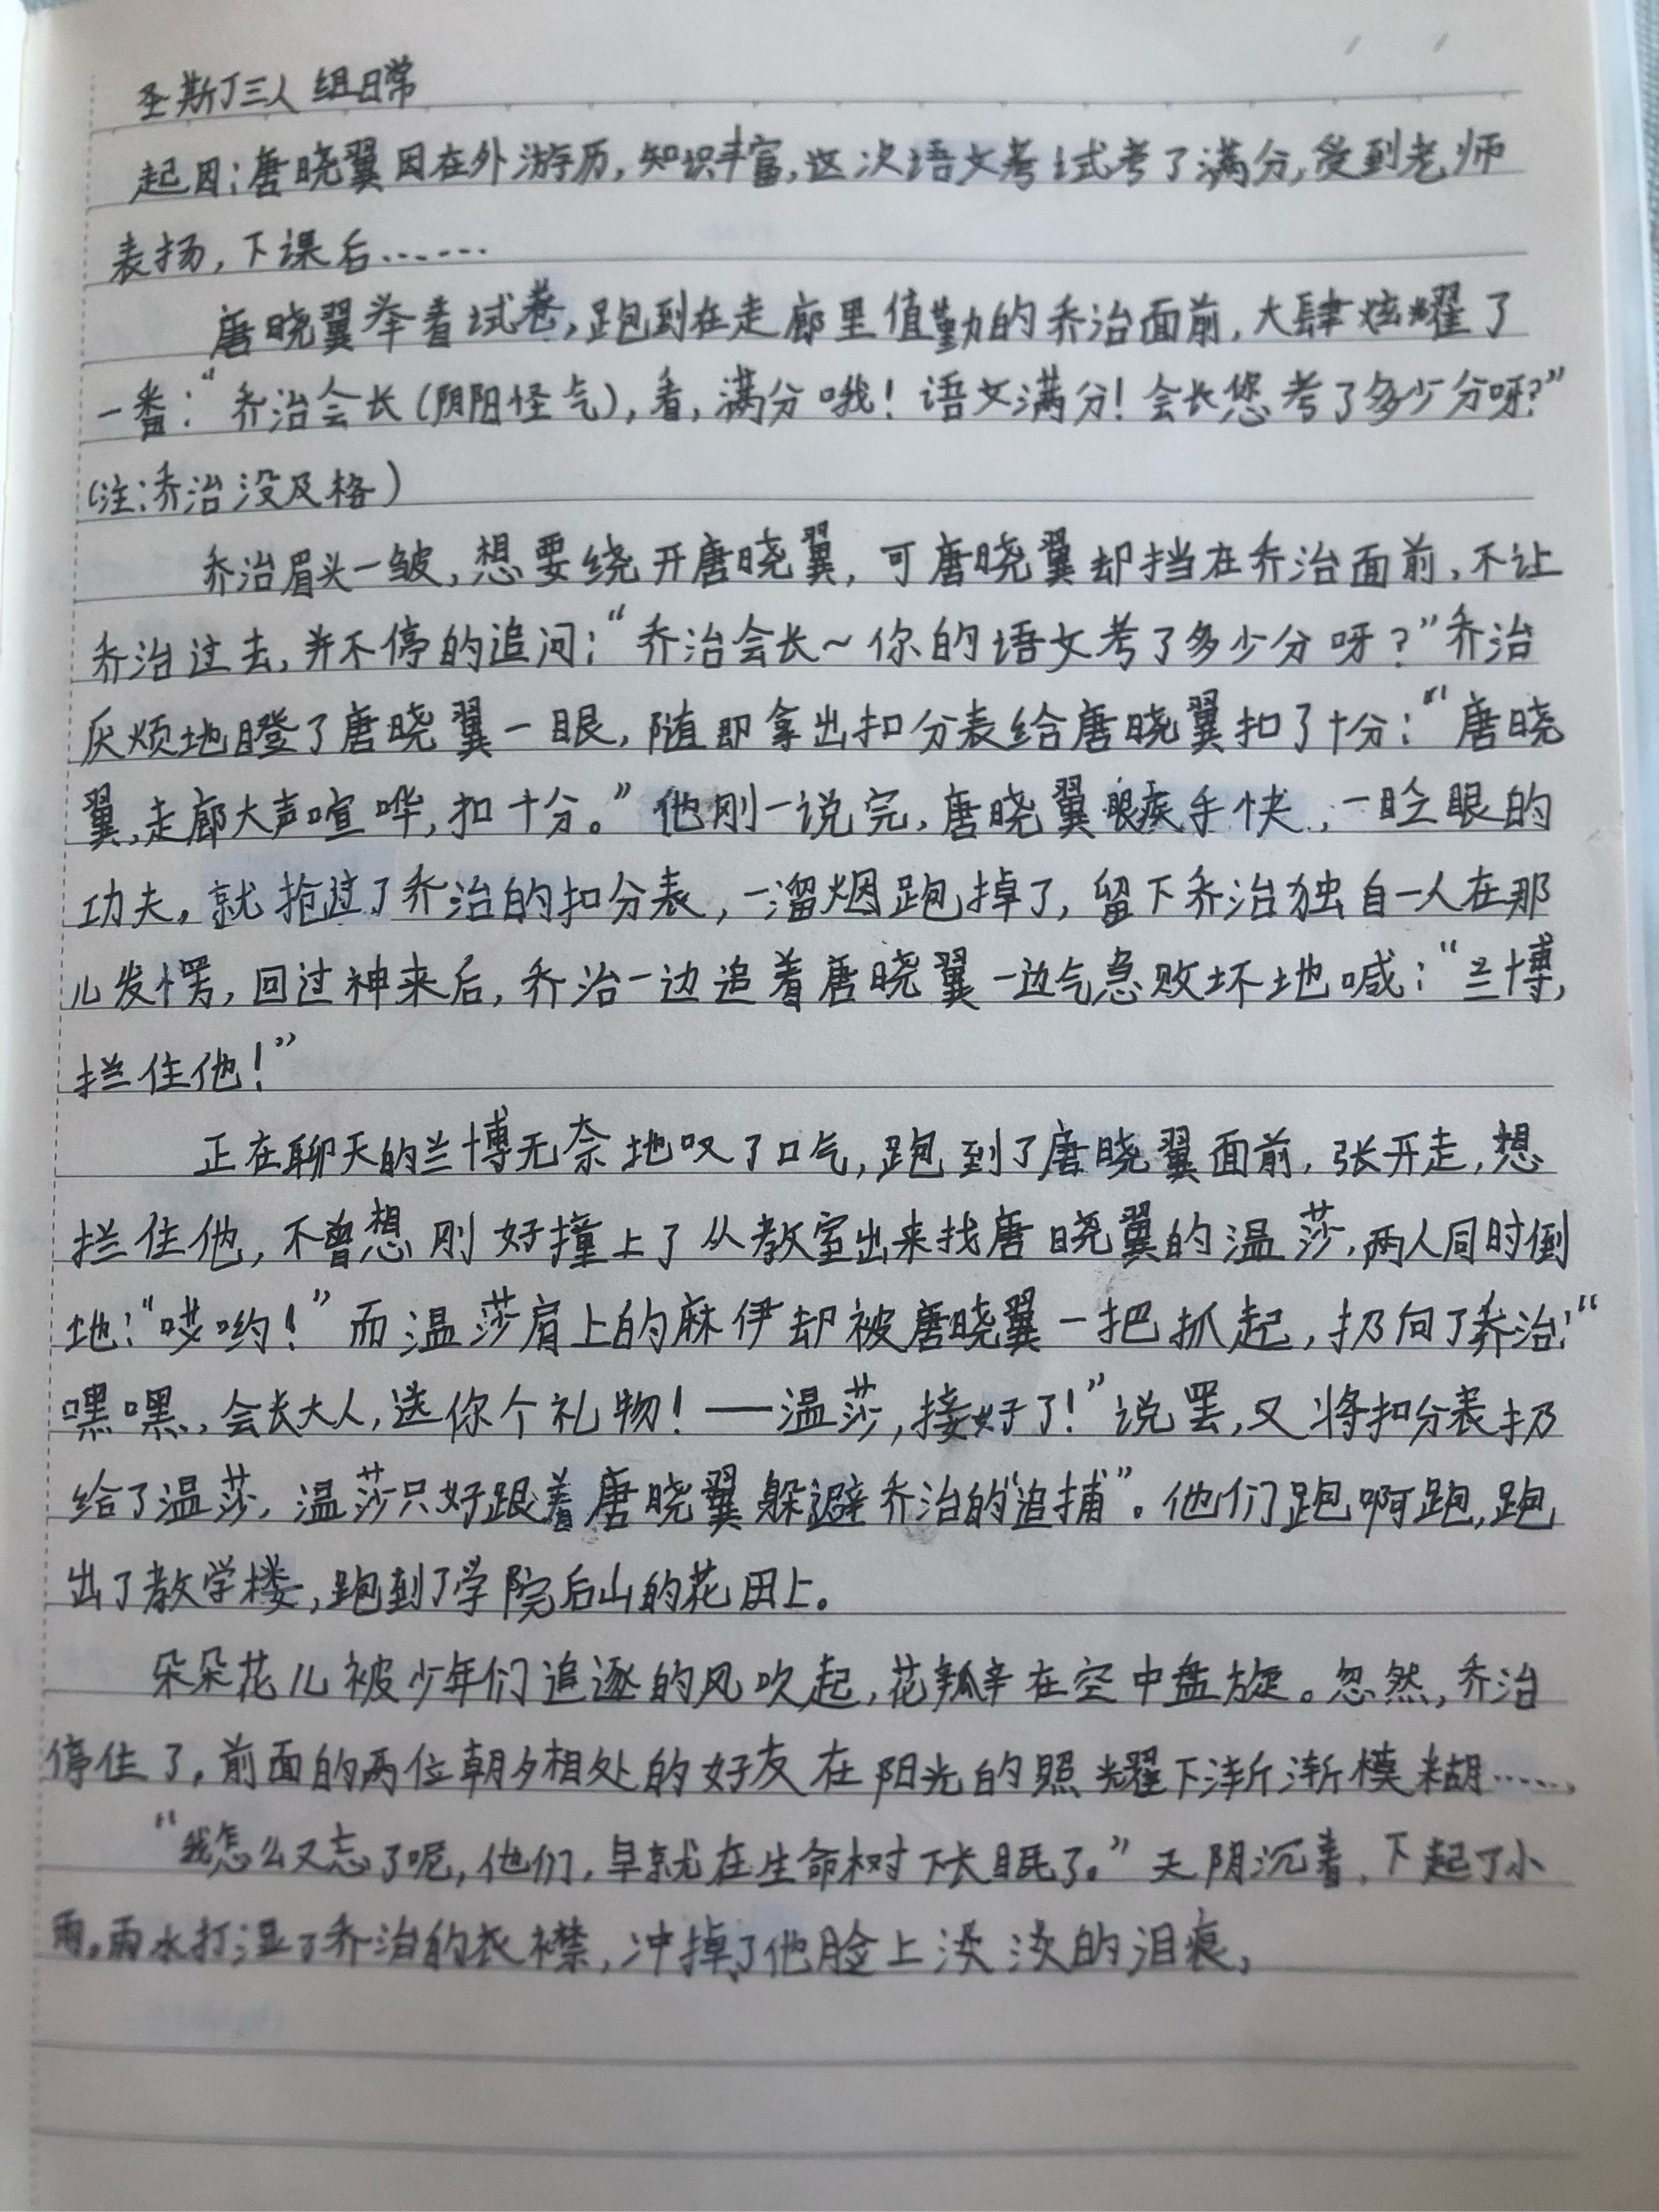 圣斯丁三人组日常
起因：唐晓翼因在外游历，知识丰富，这次语文考试考了满分，受到老师
表扬，下课后……
唐晓翼举着试卷，跑到在走廊里值勤的乔治面前，大肆炫耀了
一番：“乔治会长（阴阳怪气），看，满分哦！语文满分！会长您考了多少分呀？”
（注：乔治没及格）
乔治眉头一皱，想要绕开唐晓翼，可唐晓翼却挡在乔治面前，不让
乔治过去，并不停的追问：“乔治会长~你的语文考了多少分呀？”乔治
厌烦地瞪了唐晓翼一眼，随即拿出扣分表给唐晓翼扣了十分：“唐晓
翼，走廊大声喧哗，扣十分。”他刚一说完，唐晓翼眼疾手快，一眨眼的
功夫，就抢过了乔治的扣分表，一溜烟跑掉了，留下乔治独自一人在那
儿发愣，回过神来后，乔治一边追着唐晓翼一边气急败坏地喊：“兰博，
拦住他！”
正在聊天的兰博无奈地叹了口气，跑到了唐晓翼面前，张开走，想
拦住他，不曾想刚好撞上了从教室出来找唐晓翼的温莎，两人同时倒
地：“哎哟！”而温莎肩上的麻伊却被唐晓翼一把抓起，扔向了乔治：“
嘿嘿，会长大人，送你个礼物！——温莎，接好了！”说罢，又将扣分表扔
给了温莎，温莎只好跟着唐晓翼躲避乔治的“追捕”。他们跑啊跑，跑
出了教学楼，跑到了学院后山的花田上。
朵朵花儿被少年们追逐的风吹起，花瓣在空中盘旋。忽然，乔治
停住了，前面的两位朝夕相处的好友在阳光的照耀下渐渐模糊……
“我怎么又忘了呢，他们，早就在生命树下长眠了。”天阴沉着，下起了小
雨。雨水打湿了乔治的衣襟，冲掉了他脸上淡淡的泪痕，